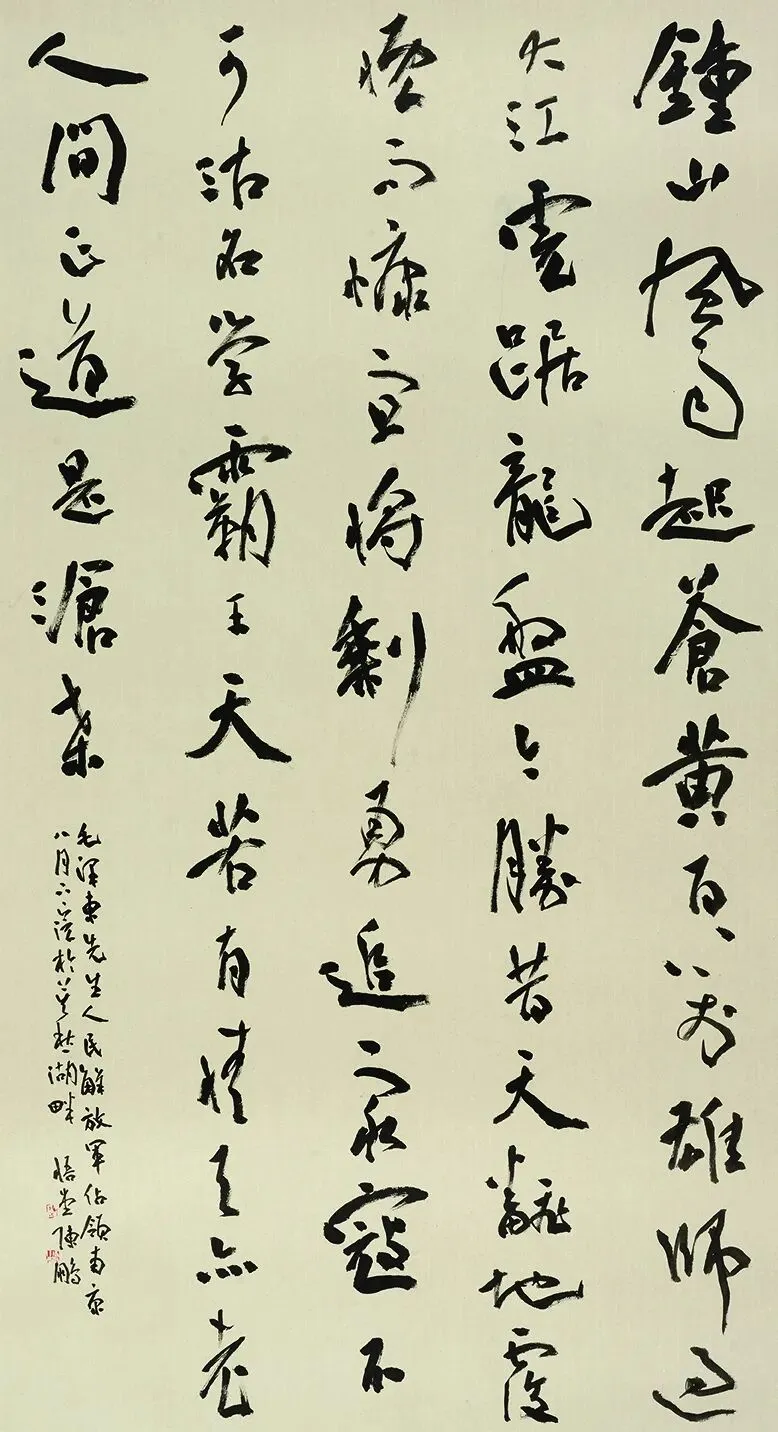 鍾山風雨起蒼黃百萬雄師過
大江虎踞龍盤今勝昔天翻地覆
慨而慷宜將剩勇追窮寇不
可沽名學霸王天若有情天亦老
人間正道是滄桑
毛澤東先生人民解放軍佔領南京
八月於莫愁湖畔 悟堂陳鵬